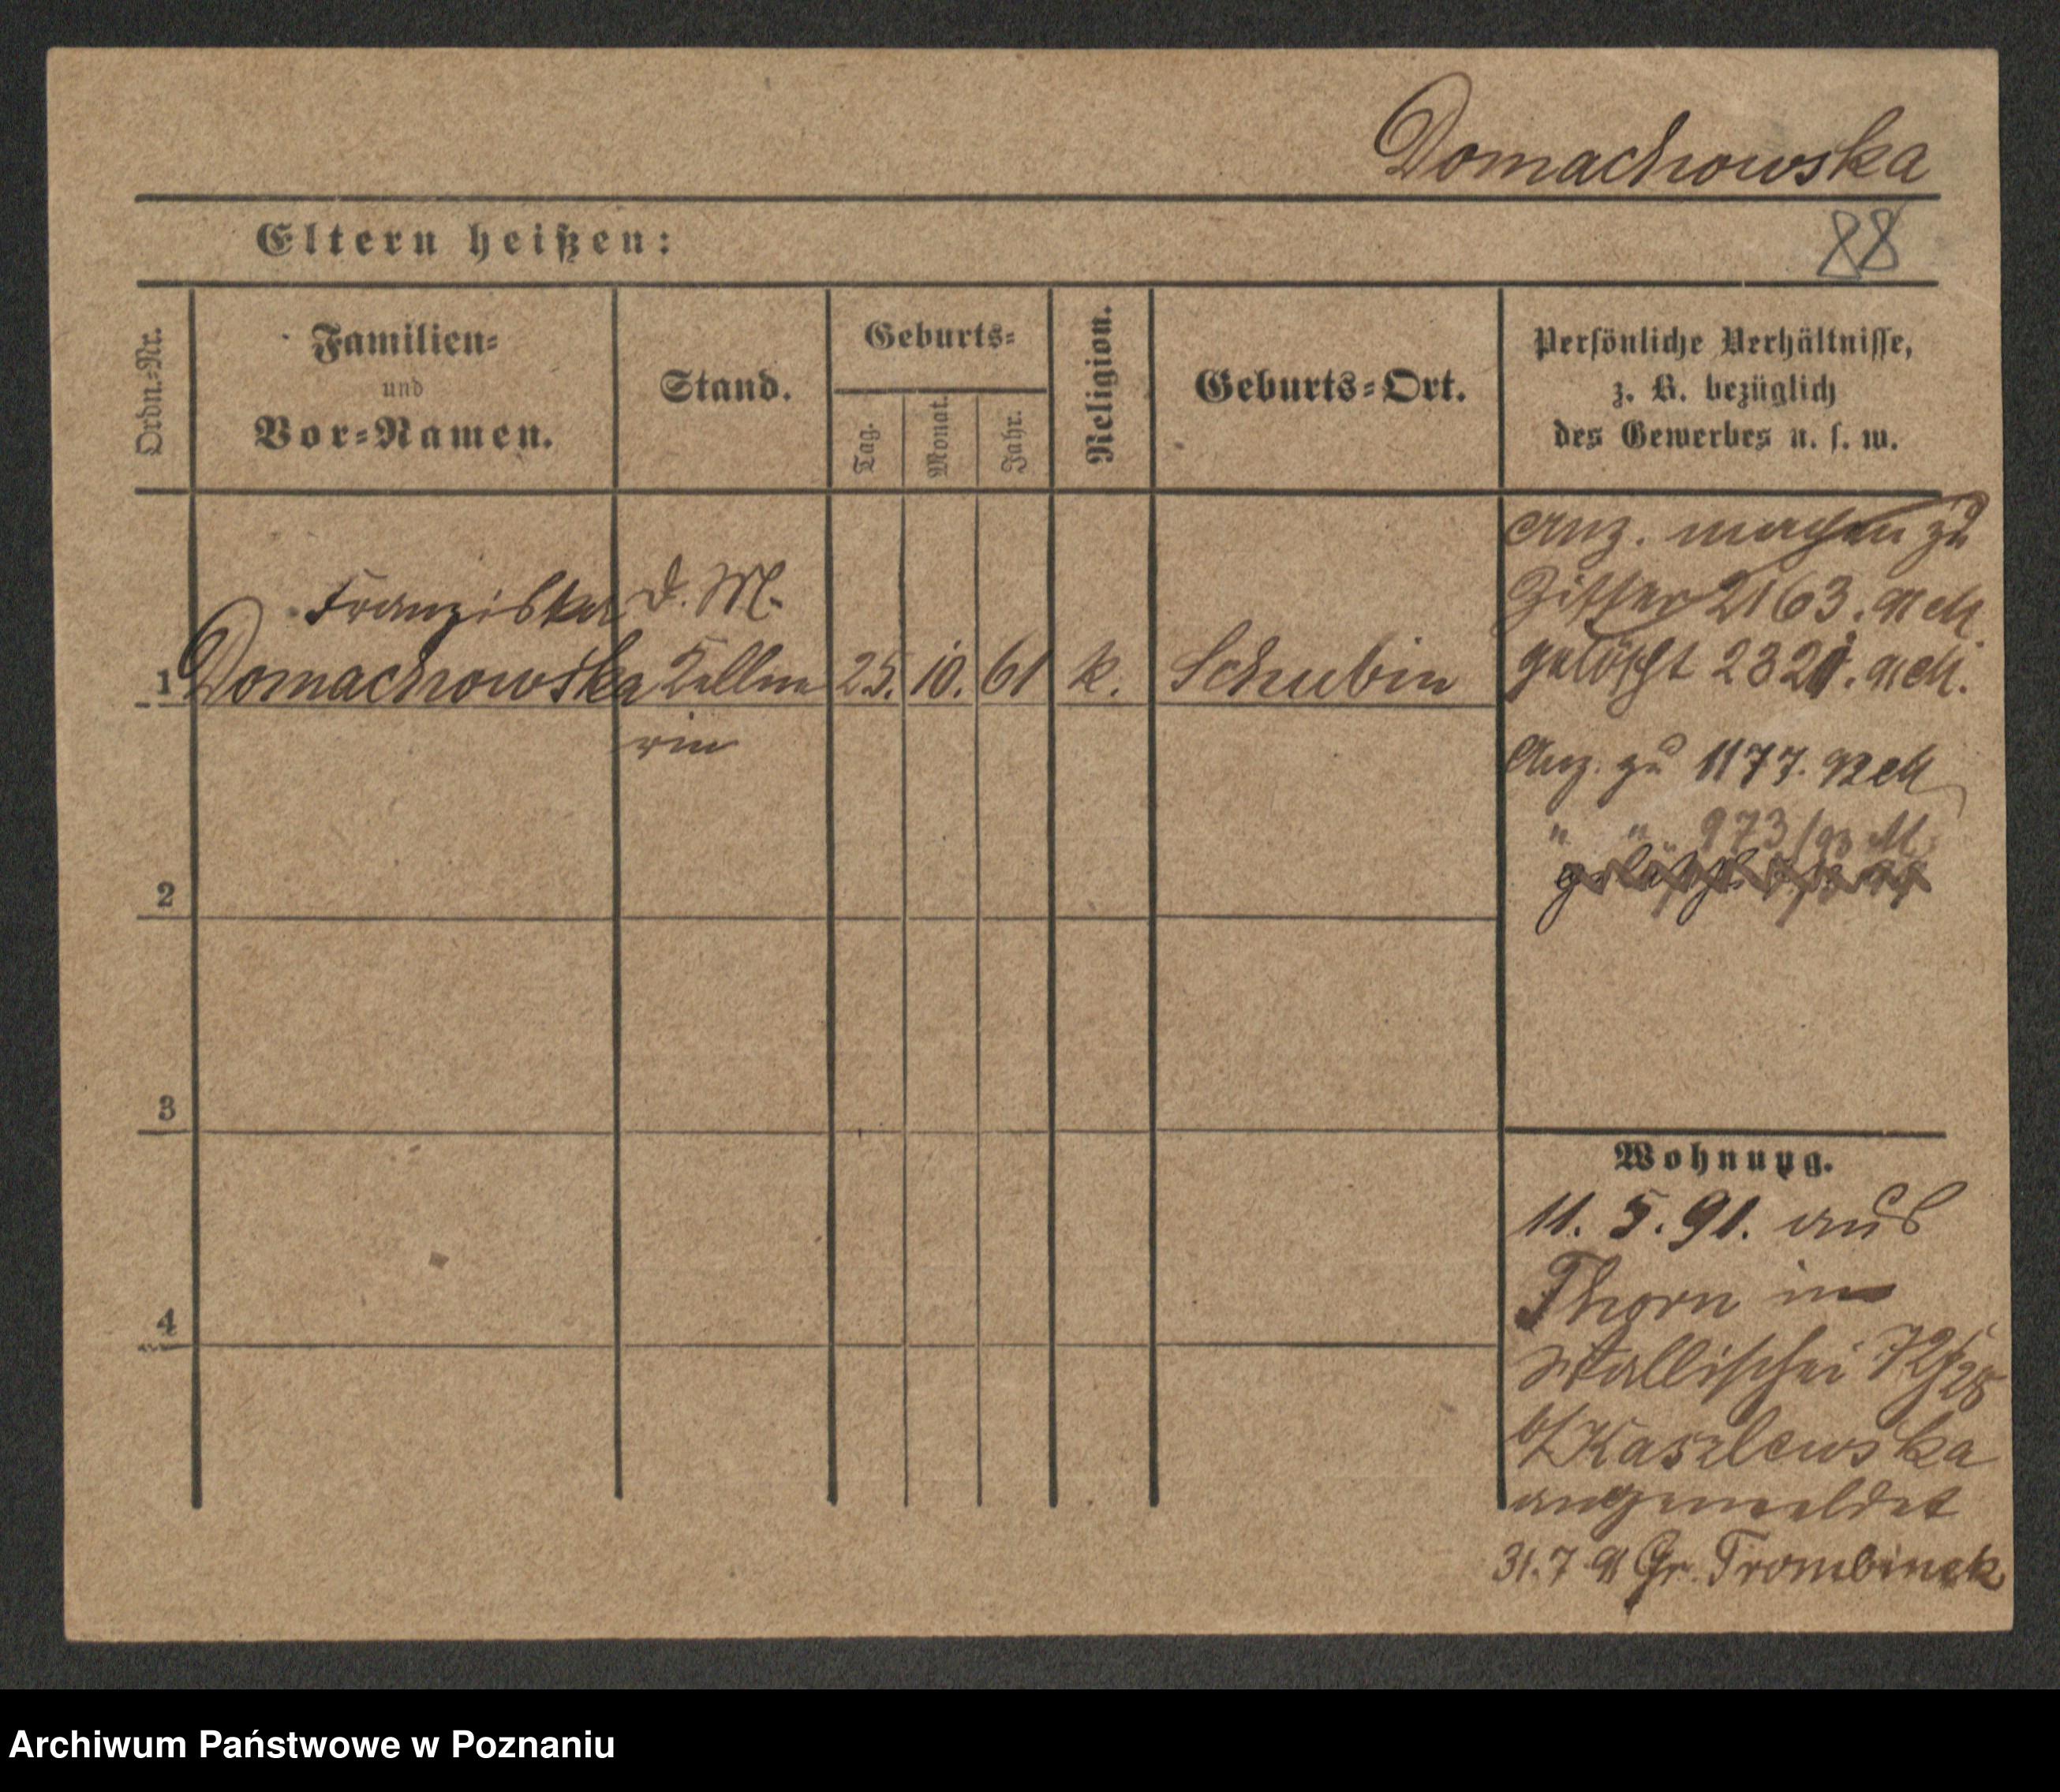 Domachowska
Eltern heißen:
88
Ordn.-Nr.
Familien-
und
Vor-Namen.
Stand.
Geburts-
Tag.
Monat.
Jahr.
Religion.
Geburts-Ort.
Persönliche Verhältnisse,
z. B. bezüglich
des Gewerbes u. s. w.
Franziska d. M.
1 Domachowska Kellne 25. 10. 61 k. Schubin
rin
Anz. machen zu
2163. 91 M.
gelöscht 2321. 91 M.
Anz. zu 1177. 92 M
" " 973/93 M.
gelöscht
2
3
4
Wohnung.
11. 5. 91. aus
Thorn in
Wallischei 72/28
b/Kaszlewska
angemeldet
31. 7 91 Gr. Trombinek
Archiwum Państwowe w Poznaniu